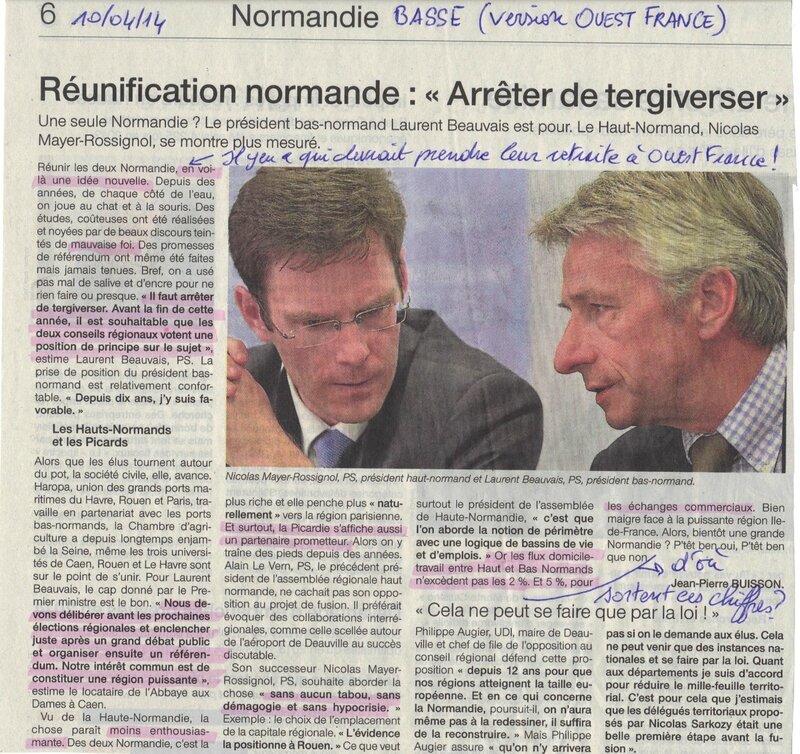 6 10/04/14 Normandie BASSE (version OUEST FRANCE)
Réunification normande : « Arrêter de tergiverser »
Une seule Normandie ? Le président bas-normand Laurent Beauvais est pour. Le Haut-Normand, Nicolas
Mayer-Rossignol, se montre plus mesuré.
Il y en a qui devrait prendre leur retraite à Ouest France !
Réunir les deux Normandie, en voi-
là une idée nouvelle. Depuis des
années, de chaque côté de l'eau,
on joue au chat et à la souris. Des
études, coûteuses ont été réalisées
et noyées par de beaux discours tein-
tés de mauvaise foi. Des promesses
de référendum ont même été faites
mais jamais tenues. Bref, on a usé
pas mal de salive et d'encre pour ne
rien faire ou presque. « Il faut arrêter
de tergiverser. Avant la fin de cette
année, il est souhaitable que les
deux conseils régionaux votent une
position de principe sur le sujet »,
estime Laurent Beauvais, PS. La
prise de position du président bas-
normand est relativement confor-
table. « Depuis dix ans, j'y suis fa-
vorable. »
Les Hauts-Normands
et les Picards
Alors que les élus tournent autour
du pot, la société civile, elle, avance.
Haropa, union des grands ports ma-
ritimes du Havre, Rouen et Paris, tra-
vaille en partenariat avec les ports
bas-normands, la Chambre d'agri-
culture a depuis longtemps enjam-
bé la Seine, même les trois universi-
tés de Caen, Rouen et Le Havre sont
sur le point de s'unir. Pour Laurent
Beauvais, le cap donné par le Pre-
mier ministre est le bon. « Nous de-
vons délibérer avant les prochaines
élections régionales et enclencher
juste après un grand débat public
et organiser ensuite un référen-
dum. Notre intérêt commun est de
constituer une région puissante »,
estime le locataire de l'Abbaye aux
Dames à Caen.
Vu de la Haute-Normandie, la
chose paraît moins enthousias-
mante. Des deux Normandie, c'est la
Nicolas Mayer-Rossignol, PS, président haut-normand et Laurent Beauvais, PS, président bas-normand.
plus riche et elle penche plus « natu-
rellement » vers la région parisienne.
Et surtout, la Picardie s'affiche aussi
un partenaire prometteur. Alors on y
traîne des pieds depuis des années.
Alain Le Vern, PS, le précédent pré-
sident de l'assemblée régionale haut
normande, ne cachait pas son oppo-
sition au projet de fusion. Il préférait
évoquer des collaborations interré-
gionales, comme celle scellée autour
de l'aéroport de Deauville au succès
discutable.
Son successeur Nicolas Mayer-
Rossignol, PS, souhaite aborder la
chose « sans aucun tabou, sans
démagogie et sans hypocrisie. »
Exemple : le choix de l'emplacement
de la capitale régionale. « L'évidence
la positionne à Rouen. » Ce que veut
surtout le président de l'assemblée
de Haute-Normandie, « c'est que
l'on aborde la notion de périmètre
avec une logique de bassins de vie
et d'emplois. » Or les flux domicile-
travail entre Haut et Bas Normands
n'excèdent pas les 2 %. Et 5 %, pour
les échanges commerciaux. Bien
maigre face à la puissante région Ile-
de-France. Alors, bientôt une grande
Normandie ? P'têt ben oui, P'têt ben
que non.
Jean-Pierre BUISSON.
d'où
sortent ces chiffres ?
« Cela ne peut se faire que par la loi ! »
Philippe Augier, UDI, maire de Deau-
ville et chef de file de l'opposition au
conseil régional défend cette pro-
position « depuis 12 ans pour que
nos régions atteignent la taille eu-
ropéenne. Et en ce qui concerne
la Normandie, poursuit-il, on n'aura
même pas à la redessiner, il suffira
de la reconstruire. » Mais Philippe
Augier assure « qu'on n'y arrivera
pas si on le demande aux élus. Cela
ne peut venir que des instances na-
tionales et se faire par la loi. Quant
aux départements je suis d'accord
pour réduire le mille-feuille territo-
rial. C'est pour cela que j'estimais
que les délégués territoriaux propo-
sés par Nicolas Sarkozy était une
belle première étape avant la fu-
sion ».